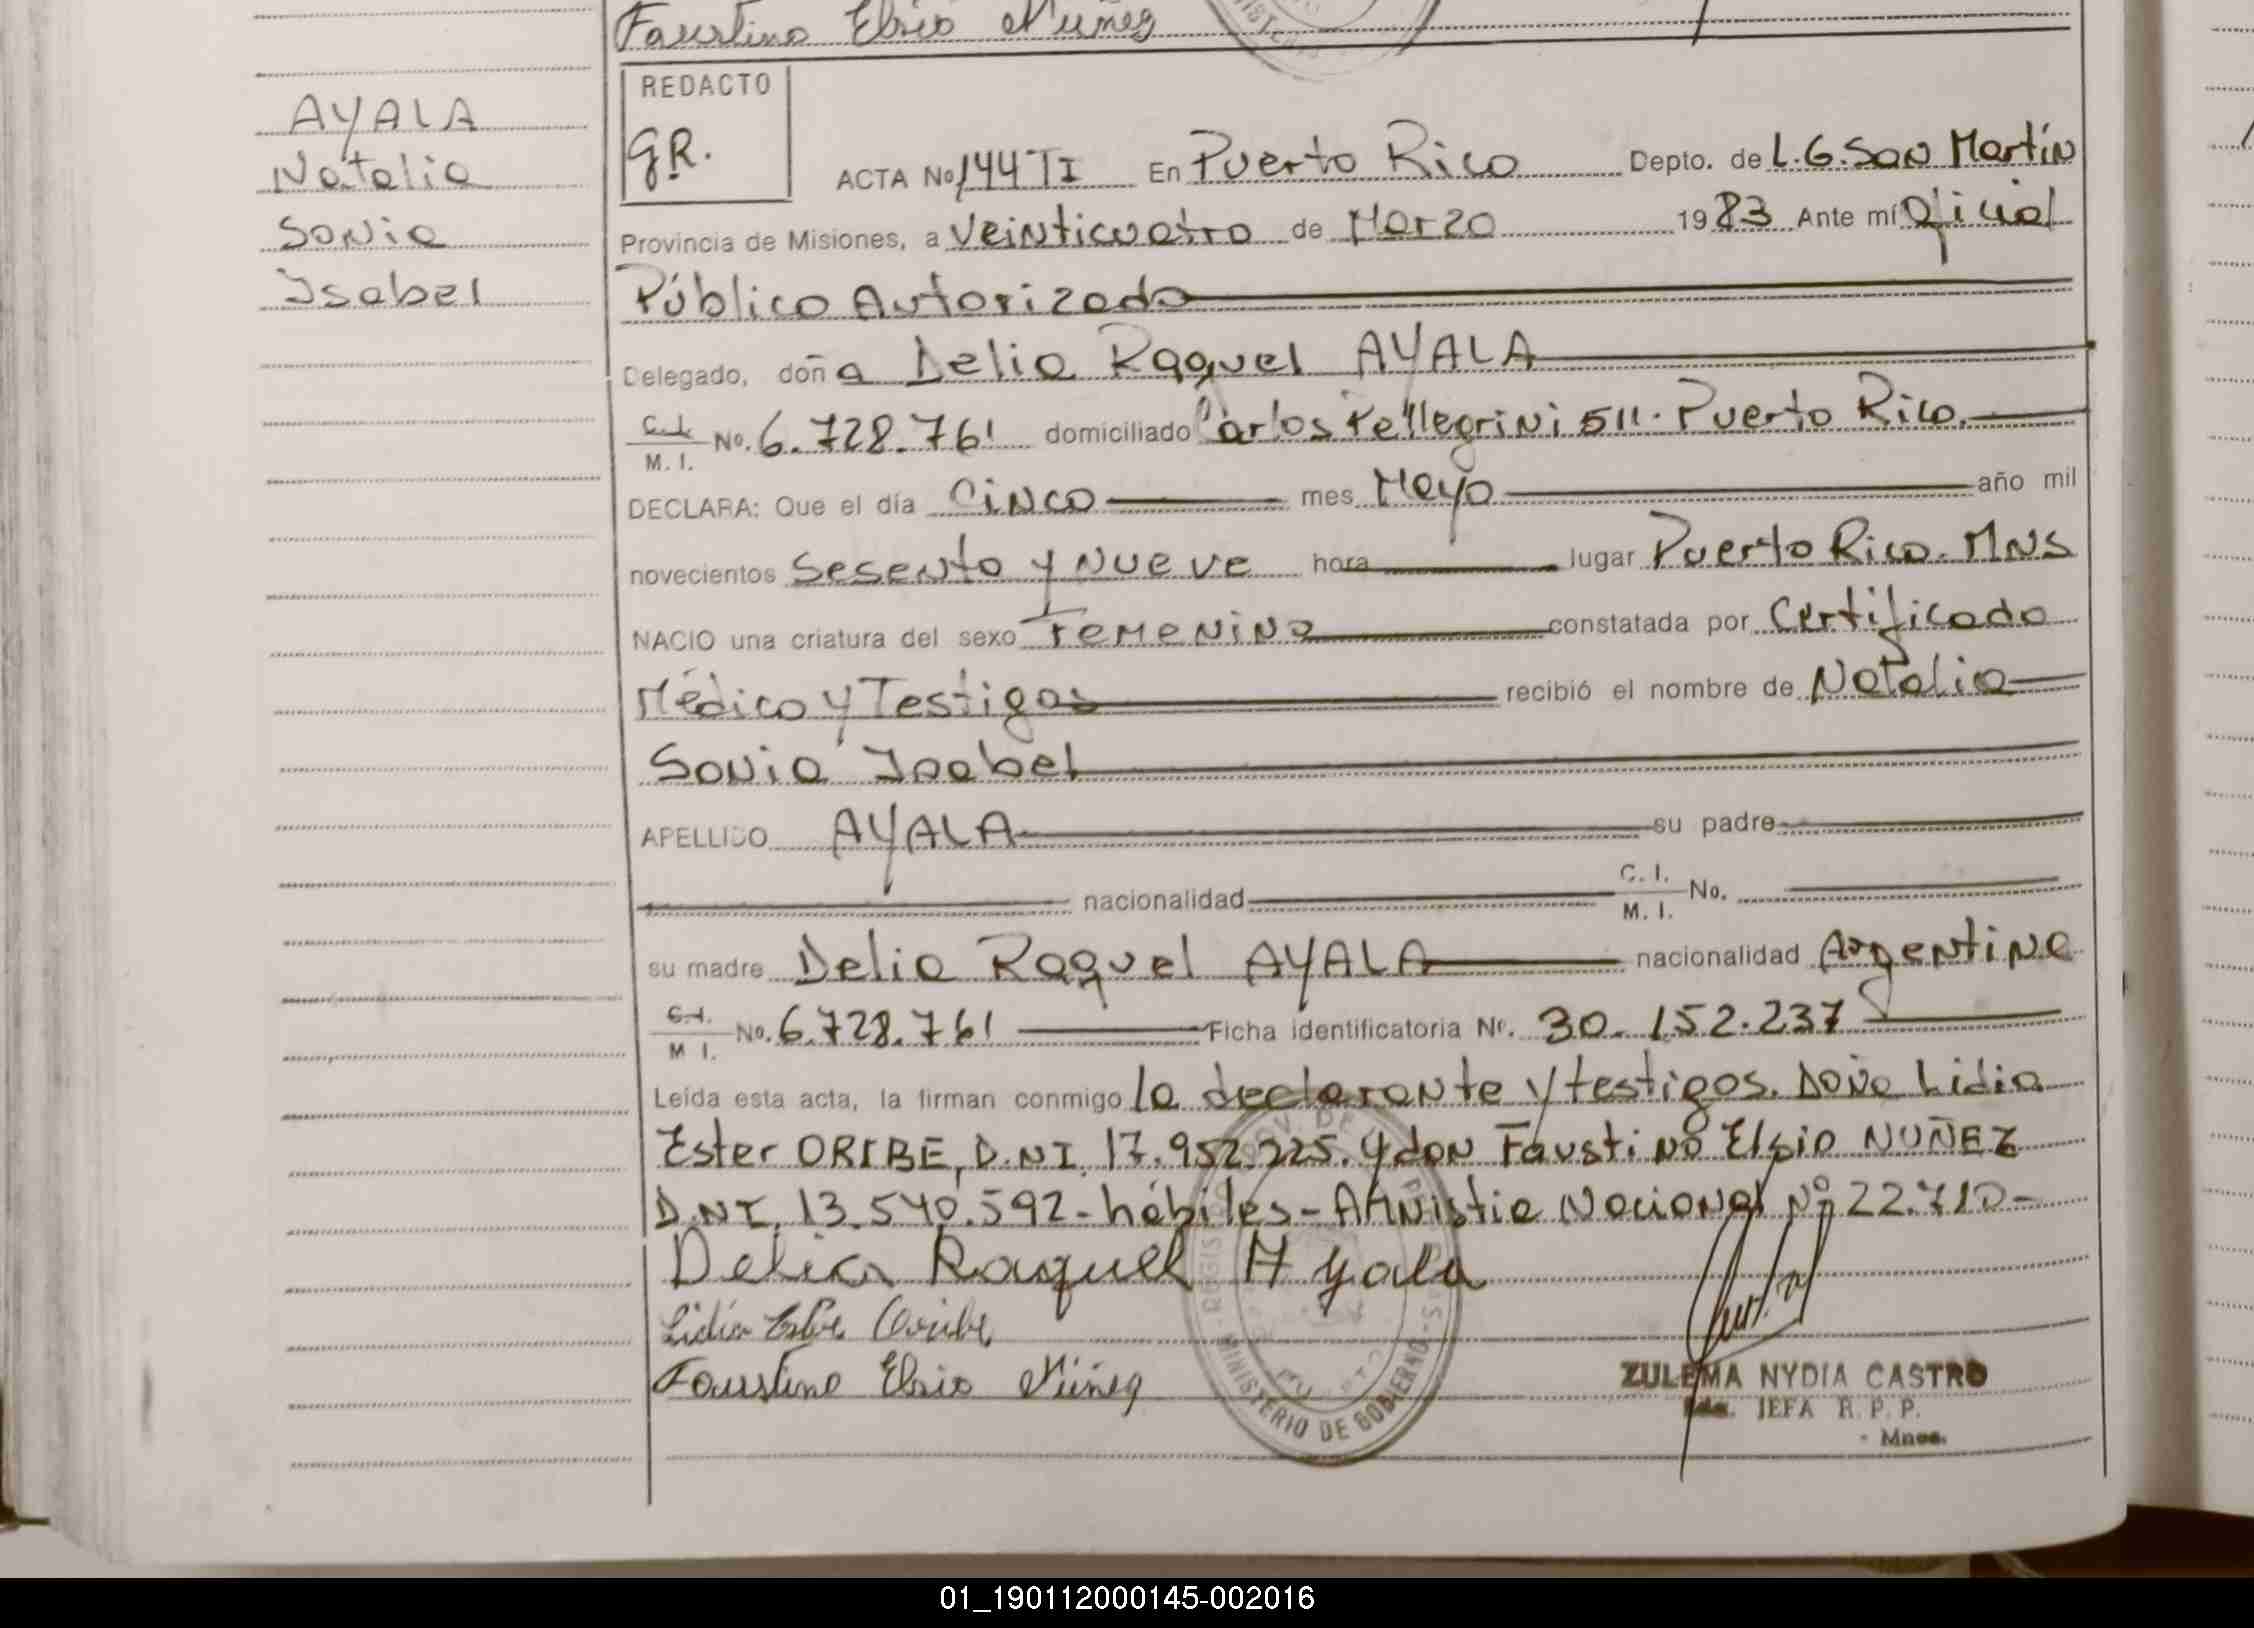 Faustino Elsio Nuñez
REDACTO
AYALA
Natalia
Sonia
Isabel
GR.
ACTA No 144 TI En Puerto Rico Depto. de L.G. San Martín
Provincia de Misiones, a Veinticuatro de Marzo 1983 Ante mí Oficial
Público Autorizado
Delegado, doña Delia Raquel AYALA
C.I. M.I. No. 6.728.761 domiciliado Carlos Pellegrini 511. Puerto Rico.
DECLARA: Que el día Cinco mes Mayo año mil
novecientos Sesenta y Nueve hora lugar Puerto Rico. MNS
NACIO una criatura del sexo Femenino constatada por Certificado
Médico y Testigos recibió el nombre de Natalia
Sonia Isabel
APELLIDO AYALA su padre
nacionalidad C. I. M. I. No.
su madre Delia Raquel AYALA nacionalidad Argentina
C.I. M I. No. 6.728.761 Ficha identificatoria Nº. 30.152.237
Leída esta acta, la firman conmigo la declarante y testigos. Doña Lidia
Ester ORIBE, D.NI. 17.952.225. y don Faustino Elsio NUÑEZ
D.NI. 13.540.592 - hábiles - Amnistia Nacional Nº 22.710 -
Delia Raquel Ayala
Lidia Ester Oribe
Faustino Elsio Núñez
MINISTERIO DE GOBIERNO
ZULEMA NYDIA CASTRO
JEFA R. P. P.
Mnes.
01_190112000145-002016